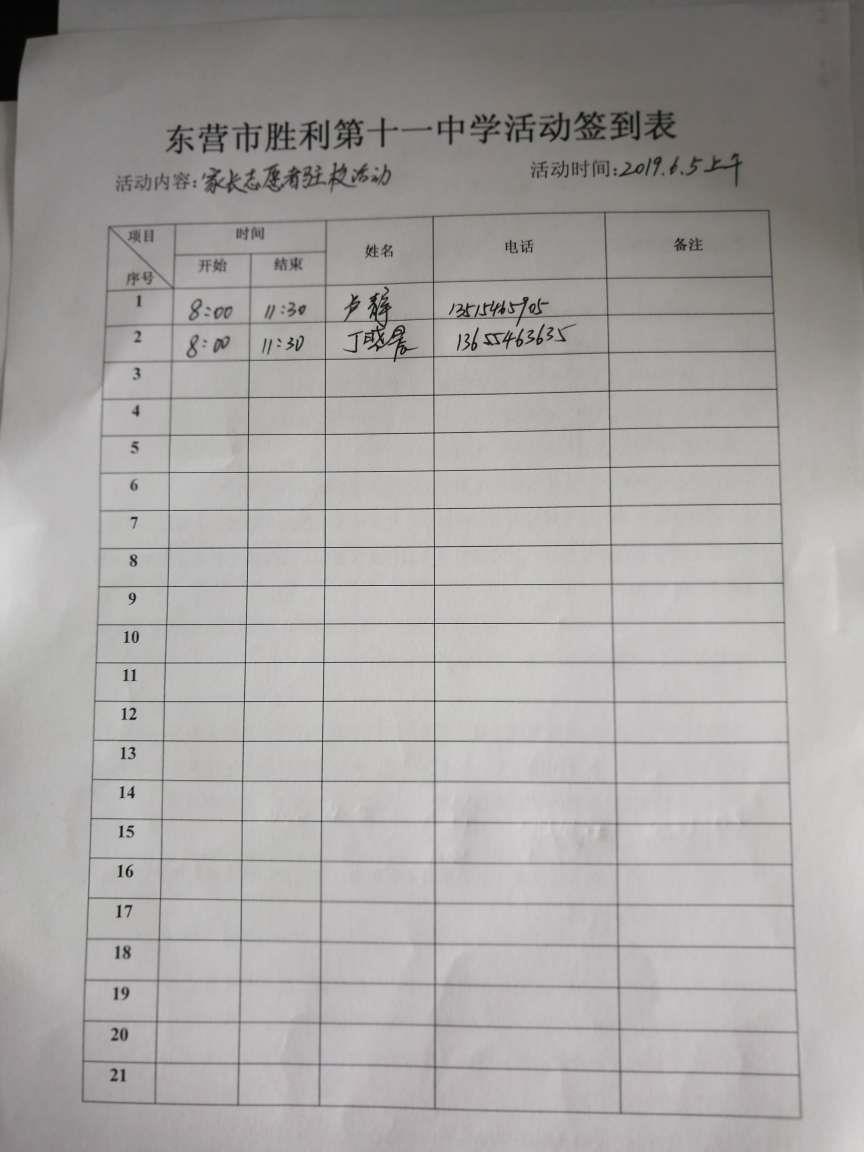 东营市胜利第十一中学活动签到表
活动内容:家长志愿者驻校活动 活动时间:2019.6.5上午
项目 时间 姓名 电话 备注
序号 开始 结束
1 8:00 11:30 卢静 13515465905
2 8:00 11:30 丁晓晨 13655463635
3
4
5
6
7
8
9
10
11
12
13
14
15
16
17
18
19
20
21